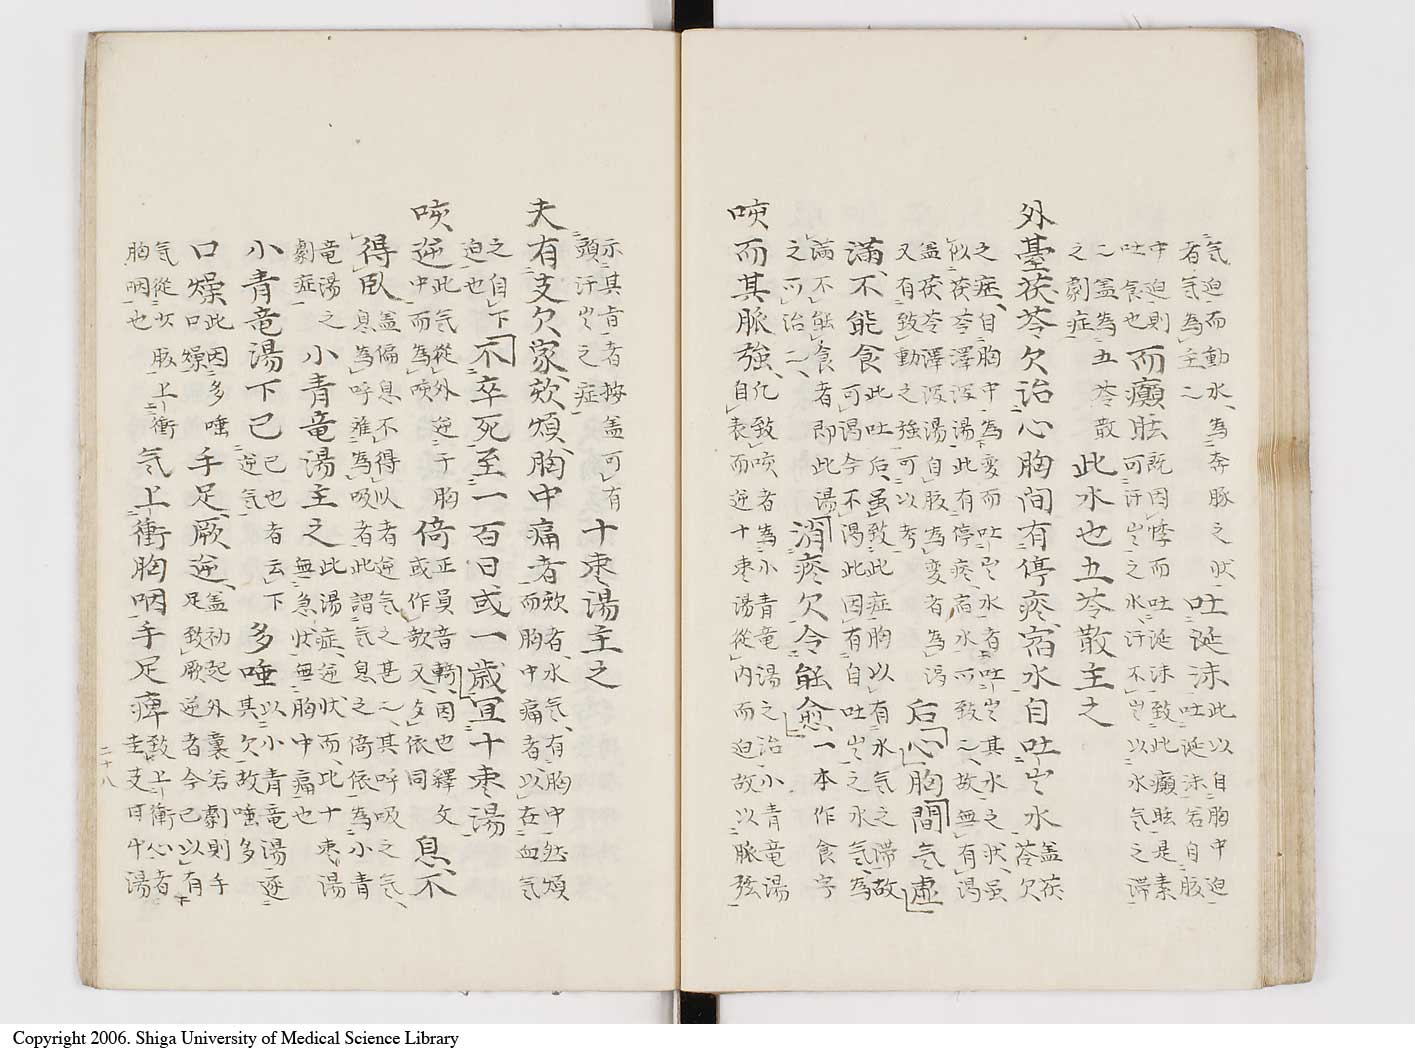 気迫而動水、為奔豚之状
者気為主
吐涎沫
此以自胸中迫
吐涎沫若自股
中迫則
吐食也
而癲眩
既因悸而吐涎沫致此癲眩是素
可汗出之水、汗不出以水気之滞
蓋為五苓散
之劇症
此水也五苓散主之
外臺茯苓欠治心胸間有停痰宿水自吐出水
蓋茯
苓欠
之症、自胸中為変而吐出水者吐出其水之状、虽
似茯苓澤泻湯此有停痰、宿水所致、故無有渇
蓋茯苓澤泻湯自股為変者為渇
又有致動之強可以考
后心胸間気虚
満、不能食
此吐后、虽致此症胸以有水気之滞故
可渇今不渇此因有自吐出之水気為
満不能食者即此湯
之可治
消痰欠令能愈
一本作食字
咳而其脈強、
化致咳者為小青竜湯之治小青竜湯
自表而逆十棗湯從内而迫故以脈弦
示其旨者按蓋可有
頭汗出之症
十棗湯主之
夫有支欠家、欬、煩、胸中痛者
欬者、水気、有胸中然煩
而胸中痛者以在血気
之自下
迫也
不卒死至一百日或一歳宜十棗湯
咳逆
此気從外逆于胸
中而為咳
倚
正員音輢、因也釋文
或作欹又
依同
息、不
得臥
蓋偏息不得以者逆気之甚、其呼吸之気、
息為呼难為吸者此謂気息之倚依為小青
竜湯之
劇症
小青竜湯主之
此湯症、逆状而、此十棗湯
無急状無胸中痛也
小青竜湯下已
已也者云下
逆気
多唾
以小青竜湯逐
其欠、故唾多
口燥
此因多唾
口燥
手足厥逆、
蓋初起外襄若劇則手
足致厥逆者今已以有
気從少股上衝
胸咽也
気上衝胸咽手足痺
致上衝心者
圭支日午湯
二十八
Copyright 2006. Shiga University of Medical Science Library